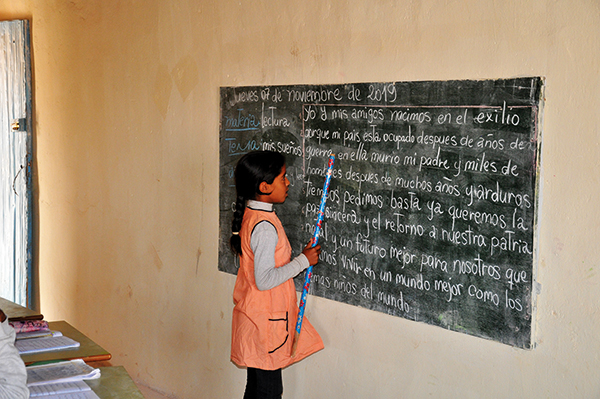 Jueves 07 de noviembre de 2019
materia lectura
Tema mis sueños
Yo y mis amigos nacimos en el exilio
porque mi pais esta ocupado despues de años de
guerra en ella murio mi padre y miles de
hombres despues de muchos años y arduros
tiempos pedimos basta ya queremos la
paz sincera y el retorno a nuestra patria
natal y un futuro mejor para nosotros que
vivir en un mundo mejor como los
demas niños del mundo